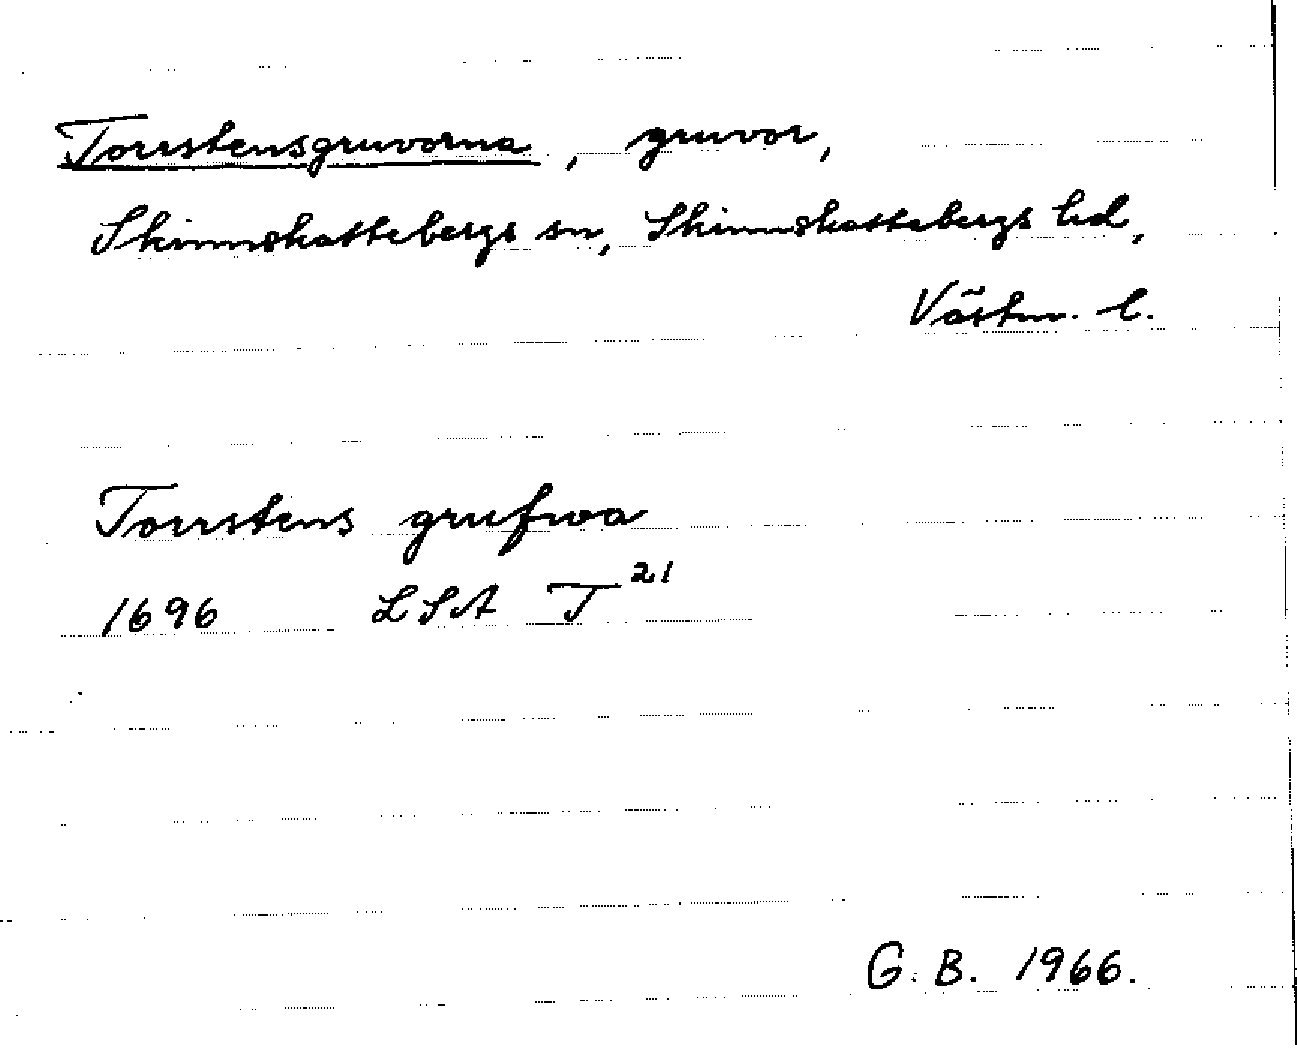 Torstensgruvorna, gruvor,
Skinnskattebergs sn, Skinnskattebergs hd,
Västm. l.
Torrstens grufwa
1696 LSA T 21
G. B. 1966.